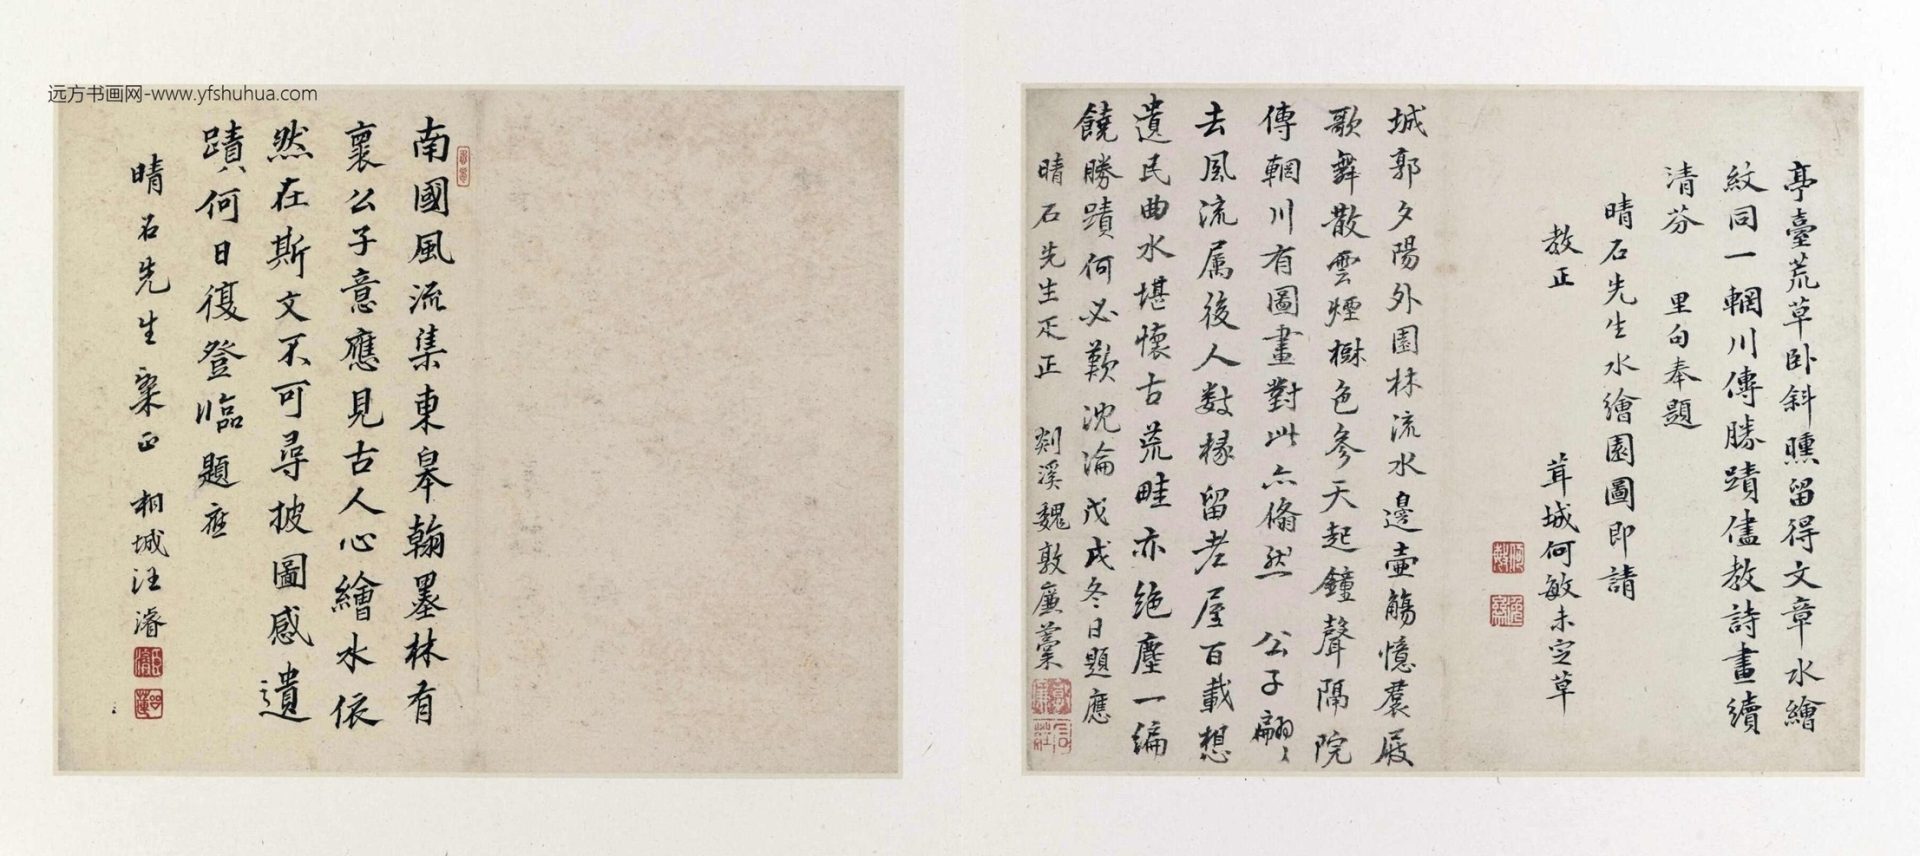 亭臺荒草卧斜曛留得文章水繪
紋同一輞川傳勝蹟儘教詩畫續
清芬 里句奉題
晴石先生水繪園圖即請
教正 茸城何敏未定草
城郭夕陽外園林流水邊壺觴憶裠屐
歌舞散雲煙樹色參天起鐘聲隔院
傳輞川有圖畫對此亦翛然 公子翩〻
去風流属後人数椽留老屋百載想
遺民曲水堪懷古荒畦亦絶塵一編
饒勝蹟何必歎沈淪戊戌冬日題應
晴石先生疋正 剡溪魏敦廉藁
南國風流集東皋翰墨林有
襄公子意應見古人心繪水依
然在斯文不可尋披圖感遺
蹟何日復登臨題應
晴石先生粢正 相城汪濬
远方书画网-www.yfshuhua.com